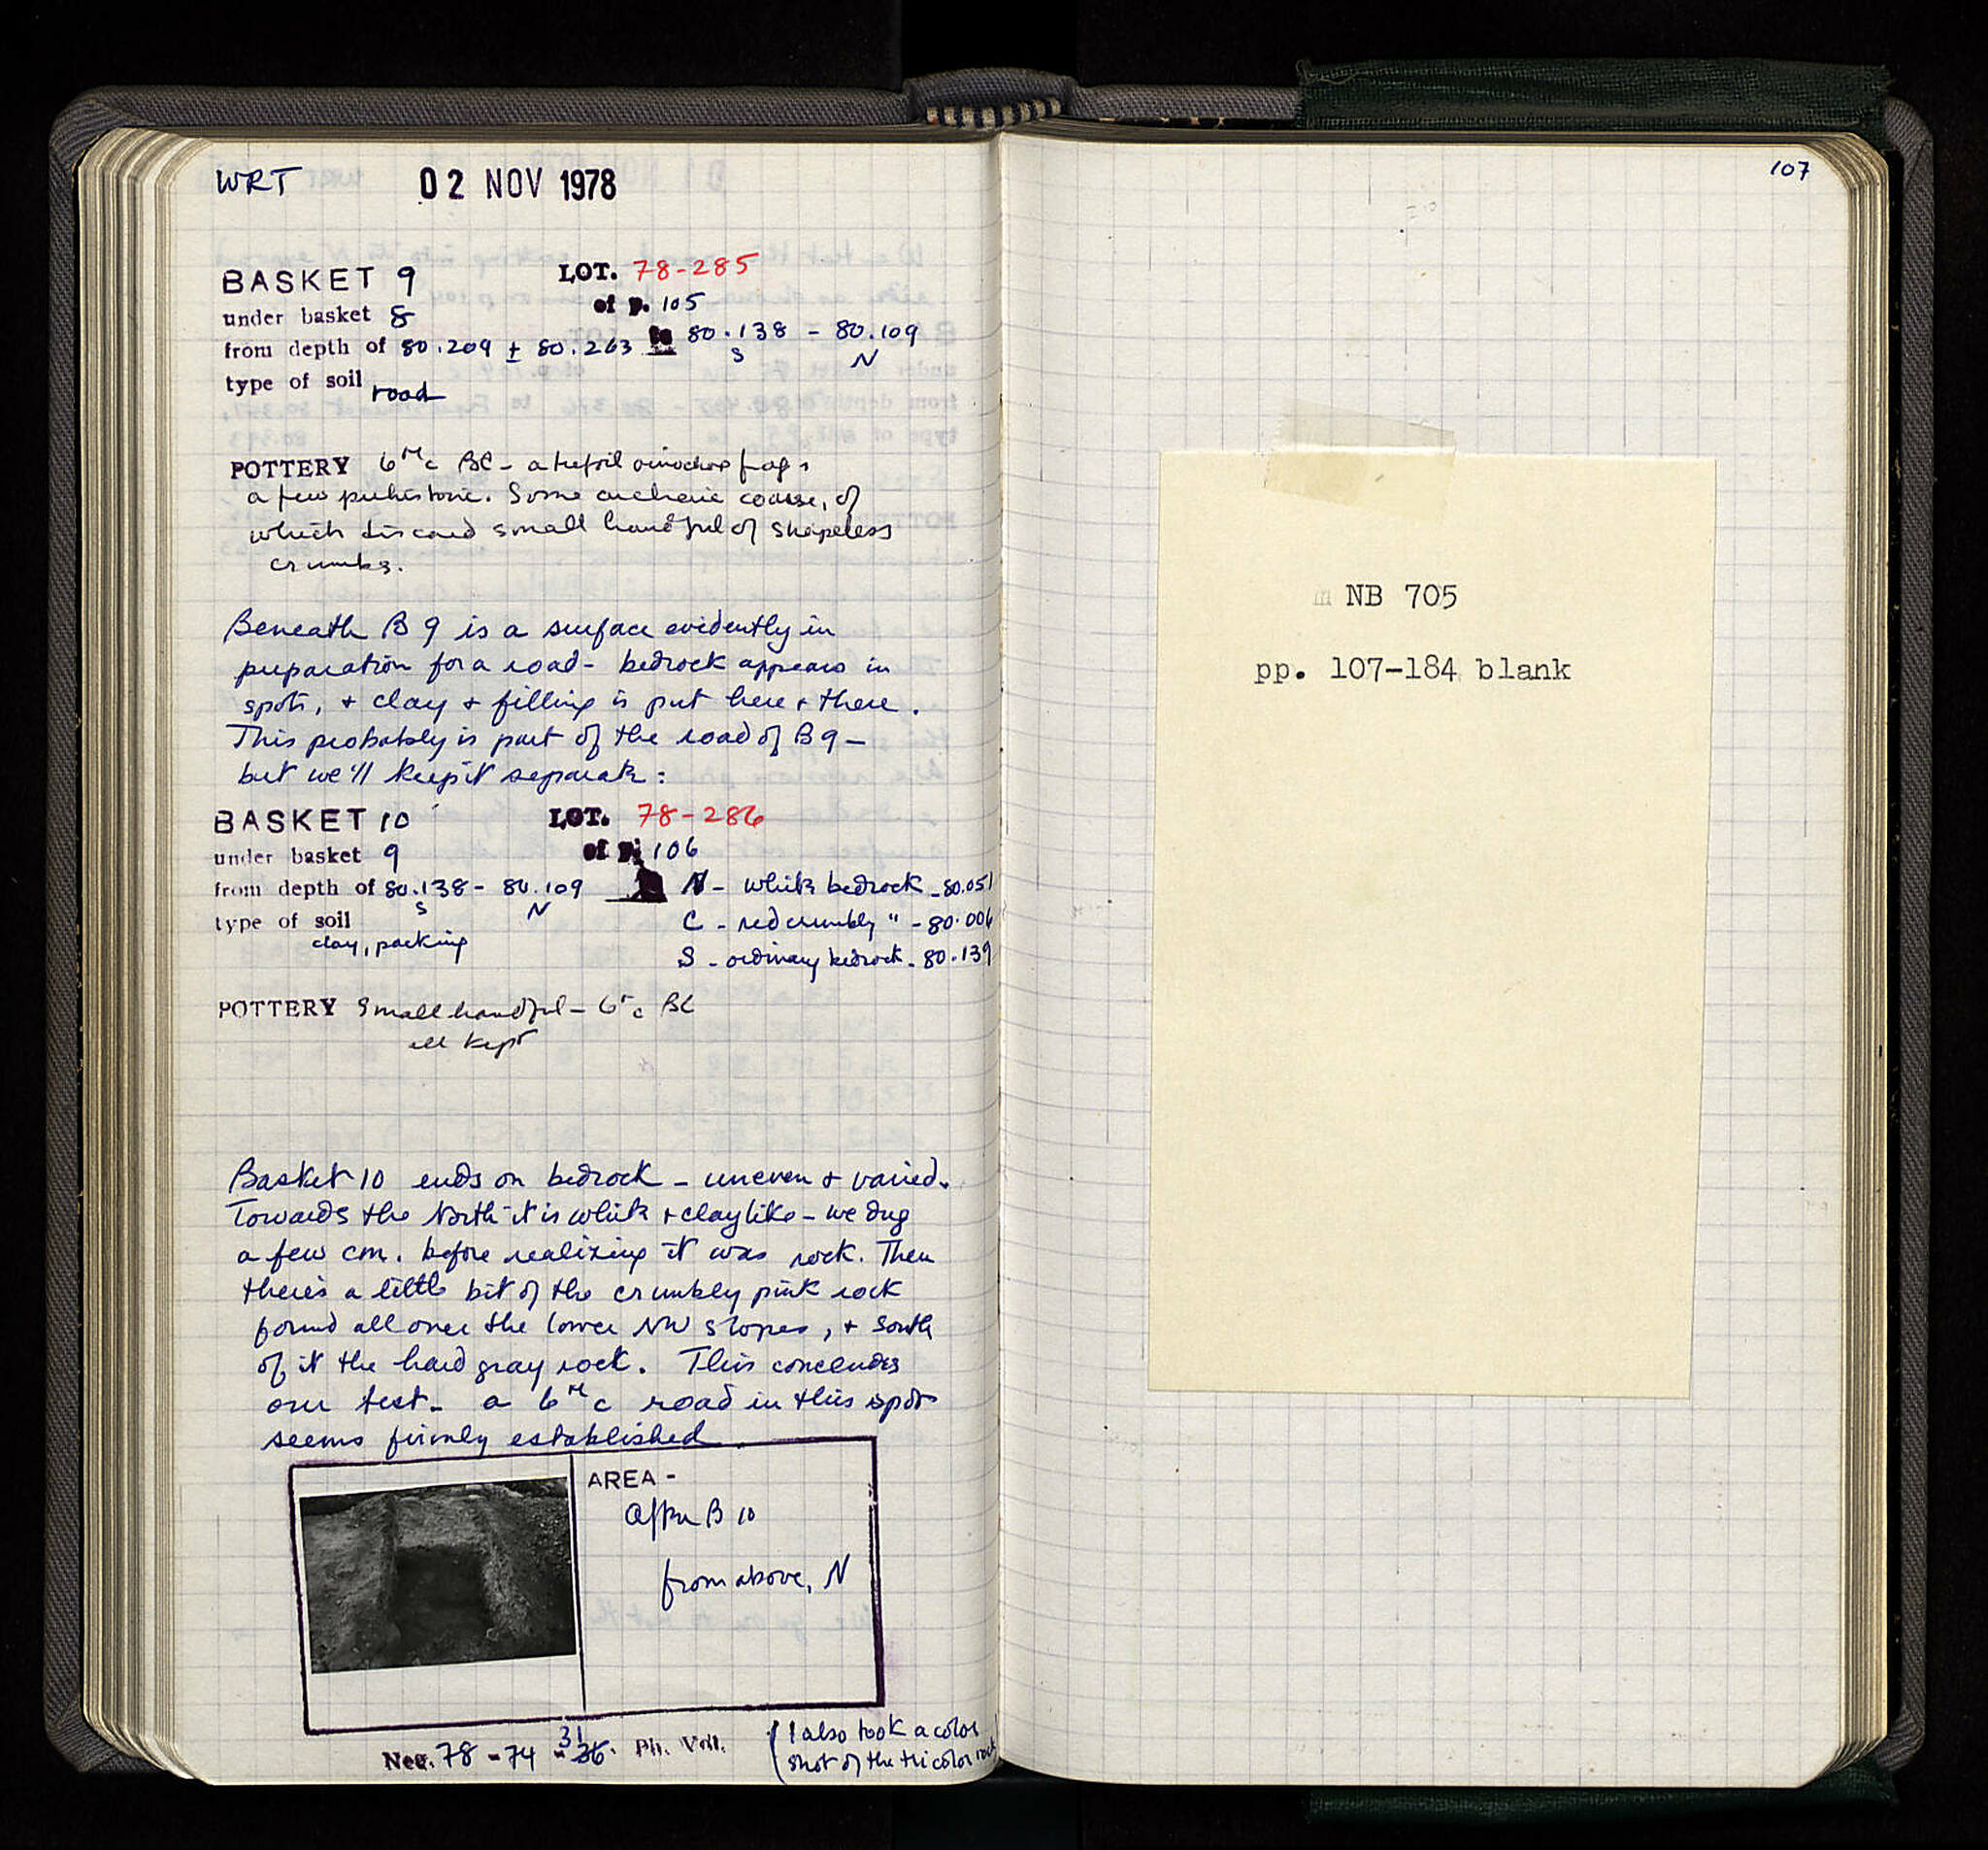 WRT 02 NOV 1978
BASKET 9 LOT. 78-285
under basket 8 of p. 105
from depth of 80.209 ± 80.263 to 80.138 - 80.109
S N
type of soil road
POTTERY 6th c BC - a trefoil oinochoe frags
a few prehistoric. Some archaic coarse, of
which discard small handful of shapeless
crumbs.
Beneath B 9 is a surface evidently in
preparation for a road - bedrock appears in
spots, + clay + filling is put here + there.
This probably is part of the road of B 9 -
but we'll keep it separate:
BASKET 10 LOT. 78-286
under basket 9 of p. 106
from depth of 80.138 - 80.109 N - white bedrock - 80.051
S N
type of soil C - red crumbly " - 80.006
clay, packing S - ordinary bedrock - 80.139
POTTERY Small handful - 6th c BC
all kept
Basket 10 ends on bedrock - uneven + varied.
Towards the North it is white + claylike - we dug
a few cm. before realizing it was rock. Then
there's a little bit of the crumbly pink rock
found all over the lower NW slopes, + South
of it the hard gray rock. This concludes
our test - a 6th c road in this spot
seems firmly established.
AREA -
After B 10
from above, N
Neg. 78 - 74 - 31 36. Ph. Vol.
(I also took a color
shot of the tricolor rock
107
NB 705
pp. 107-184 blank